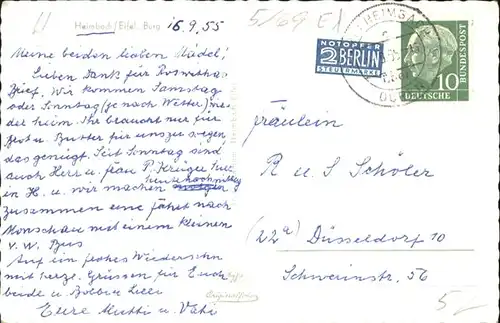 Heimbach/Eifel, Burg
16.9.55
5/69 E1
Meine beiden lieben Mädel!
Lieben Dank für Roswithas
Brief. Wir kommen Samstag
oder Sonntag (je nach Wetter) wie-
der heim. Ihr braucht nur für
Brot u. Butter für uns zu sorgen
das genügt. Seit Sonntag sind
auch Herr u. Frau P. Krüger
in H. u. wir machen heute nachmittag
zusammen eine Fahrt nach
Monschau mit einem kleinen
V.W. Bus
Auf ein frohes Wiedersehn
mit herzl. Grüssen für Euch
beide u.
Eure Mutti u. Vati
Originalfoto
NOTOPFER
2 BERLIN
STEUERMARKE
HEIMBACH
DEUTSCHE
BUNDESPOST
10
Fräulein
R u. S Schöler
(22a) Düsseldorf 10
Schwerinstr. 56